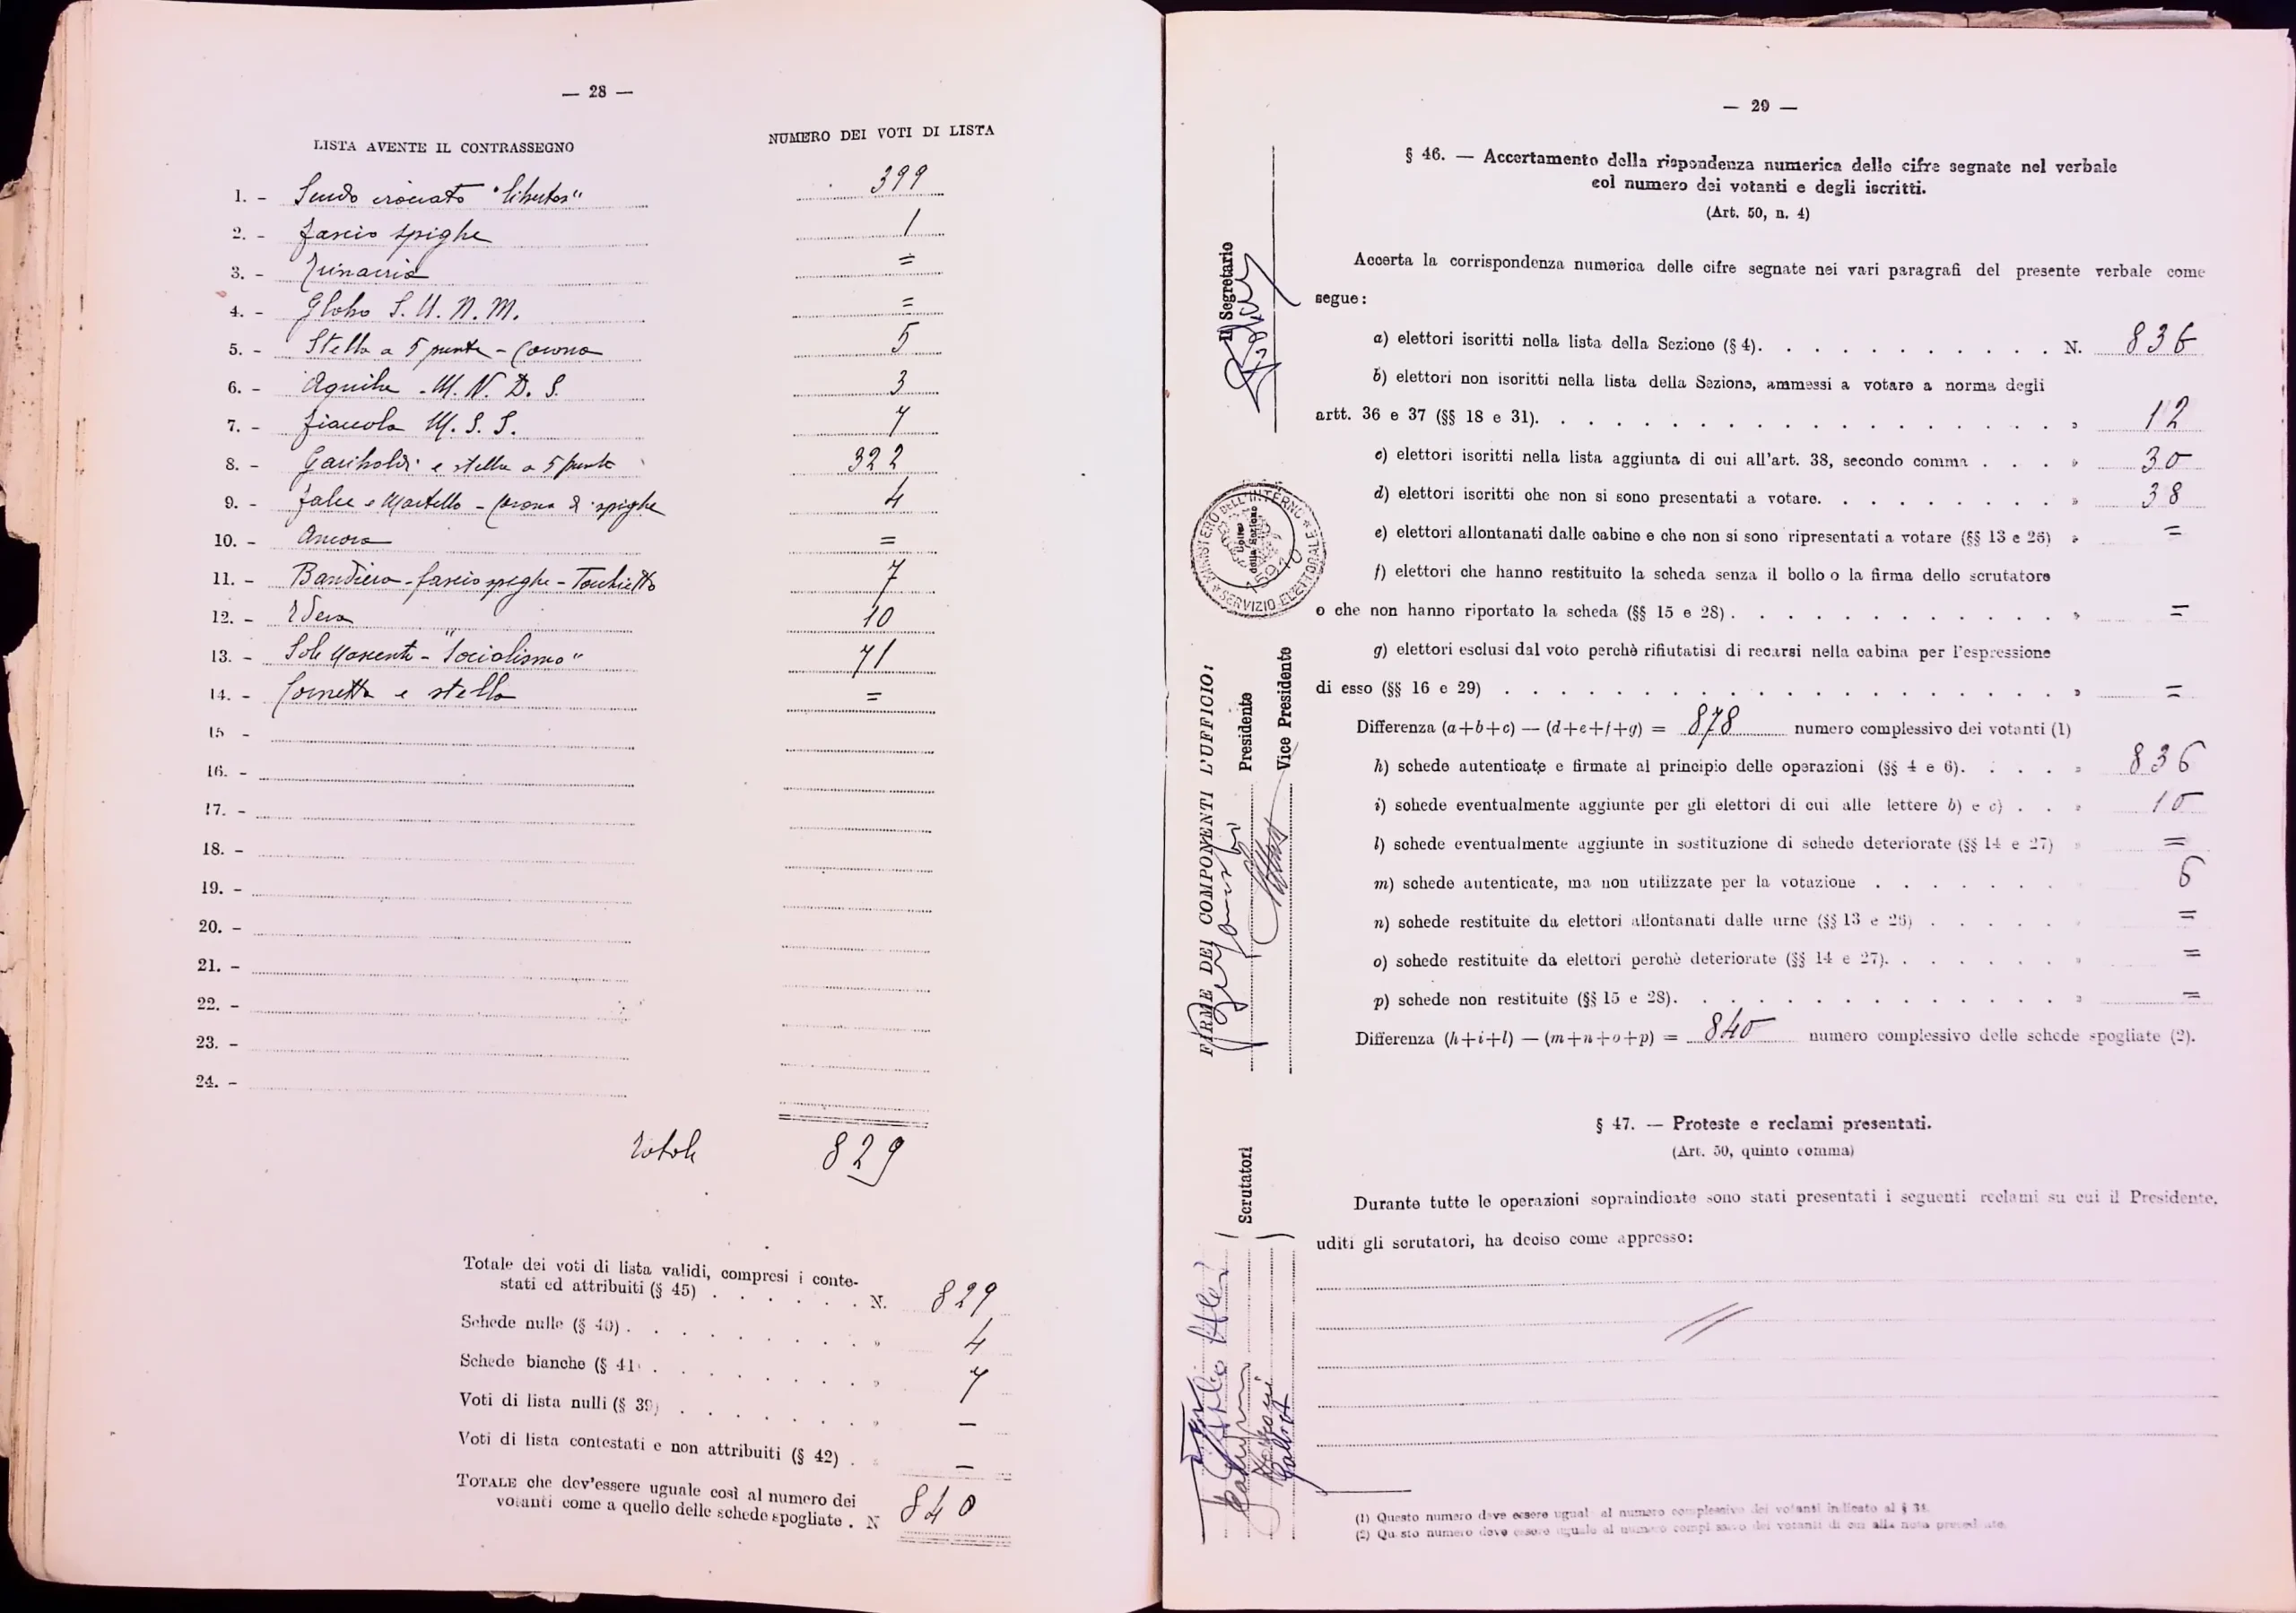 — 28 —
LISTA AVENTE IL CONTRASSEGNO
NUMERO DEI VOTI DI LISTA
1. - Scudo crociato "libertas" 399
2. - fascio spighe 1
3. - Trinacria =
4. - Globo S. U. N. M. =
5. - Stella a 5 punte - Corona 5
6. - Aquila - M. N. D. S. 3
7. - fiaccola M. S. I. 7
8. - Garibaldi e stella a 5 punte 322
9. - falce e Martello - corona di spighe 4
10. - Ancora =
11. - Bandiera - fascio spighe - 7
12. - Edera 10
13. - Sole nascente - "Socialismo" 71
14. - Cornetta e stella =
15 -
16. -
17. -
18. -
19. -
20. -
21. -
22. -
23. -
24. -
Totale 829
Totale dei voti di lista validi, compresi i conte-
stati ed attribuiti (§ 45) . . . . . . N. 829
Schede nulle (§ 40) . . . . . . . . . » 4
Schede bianche (§ 41) . . . . . . . . » 7
Voti di lista nulli (§ 39) . . . . . . . » —
Voti di lista contestati e non attribuiti (§ 42) . » —
TOTALE che dev'essere uguale così al numero dei
votanti come a quello delle schede spogliate . N 840
— 29 —
§ 46. — Accertamento della rispondenza numerica delle cifre segnate nel verbale
col numero dei votanti e degli iscritti.
(Art. 50, n. 4)
Accerta la corrispondenza numerica delle cifre segnate nei vari paragrafi del presente verbale come
segue:
a) elettori iscritti nella lista della Sezione (§ 4). . . . . . . . . . . . N. 836
b) elettori non iscritti nella lista della Sezione, ammessi a votare a norma degli
artt. 36 e 37 (§§ 18 e 31). . . . . . . . . . . . . . . . . . . . » 12
c) elettori iscritti nella lista aggiunta di cui all'art. 38, secondo comma . . . » 30
d) elettori iscritti che non si sono presentati a votare. . . . . . . . . . » 38
e) elettori allontanati dalle cabine e che non si sono ripresentati a votare (§§ 13 e 26) » =
f) elettori che hanno restituito la scheda senza il bollo o la firma dello scrutatore
o che non hanno riportato la scheda (§§ 15 e 28) . . . . . . . . . . . . . » =
g) elettori esclusi dal voto perchè rifiutatisi di recarsi nella cabina per l'espressione
di esso (§§ 16 e 29) . . . . . . . . . . . . . . . . . . . . . » =
Differenza (a+b+c) — (d+e+f+g) = 878 numero complessivo dei votanti (1)
h) schede autenticate e firmate al principio delle operazioni (§§ 4 e 6). . . . . » 836
i) schede eventualmente aggiunte per gli elettori di cui alle lettere b) e c) . . » 10
l) schede eventualmente aggiunte in sostituzione di schede deteriorate (§§ 14 e 27) » =
m) schede autenticate, ma non utilizzate per la votazione . . . . . . . 6
n) schede restituite da elettori allontanati dalle urne (§§ 13 e 26) . . . . . =
o) schede restituite da elettori perchè deteriorate (§§ 14 e 27). . . . . . . » =
p) schede non restituite (§§ 15 e 28). . . . . . . . . . . . . . . » =
Differenza (h+i+l) — (m+n+o+p) = 840 numero complessivo delle schede spogliate (2).
§ 47. — Proteste e reclami presentati.
(Art. 50, quinto comma)
Durante tutte le operazioni sopraindicate sono stati presentati i seguenti reclami su cui il Presidente,
uditi gli scrutatori, ha deciso come appresso:
(1) Questo numero deve essere uguale al numero complessivo dei votanti indicato al § 38.
(2) Questo numero deve essere uguale al numero complessivo dei votanti di cui alla nota precedente.
Il Segretario
MINISTERO DELL'INTERNO
SERVIZIO ELETTORALE
FIRME DEI COMPONENTI L'UFFICIO:
Presidente
Vice Presidente
Scrutatori